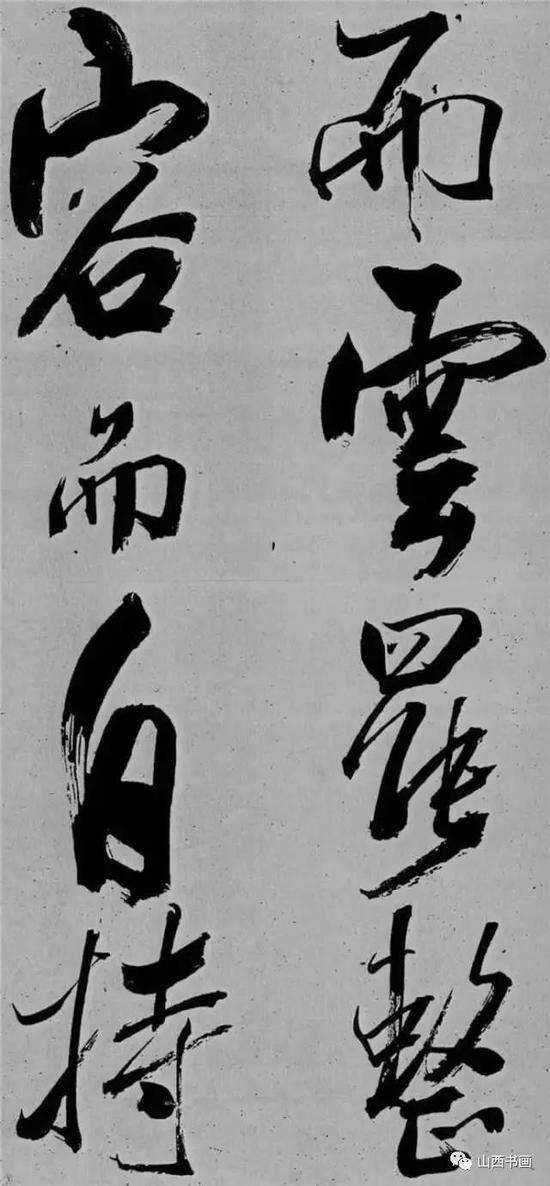 而雲罷整
容而自持
山西书画